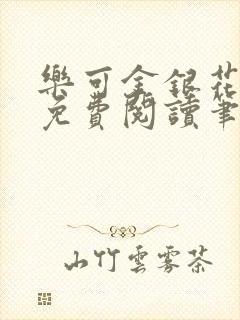 樂可金銀花
免費閱讀筆
山竹雲霧茶